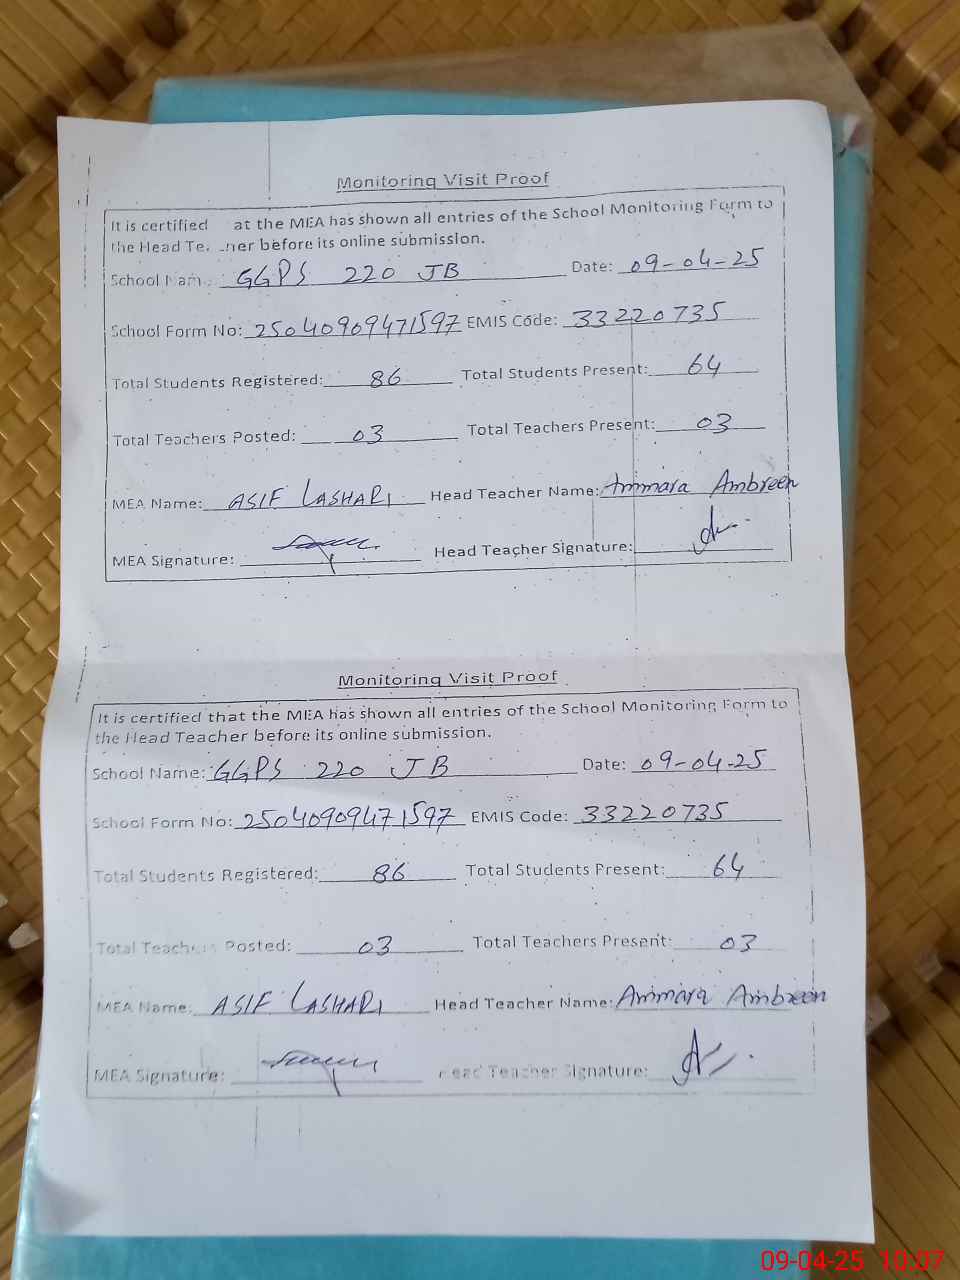 Monitoring Visit Proof
It is certified at the MEA has shown all entries of the School Monitoring Form to
the Head Te. .ner before its online submission.
School Nam. GGPS 220 JB Date: 09-04-25
School Form No: 25040909471597 EMIS Code: 33220735
Total Students Registered: 86 Total Students Present: 64
Total Teachers Posted: 03 Total Teachers Present: 03
MEA Name: ASIF LASHARI Head Teacher Name: Ammara Ambreen
MEA Signature: Head Teacher Signature:
Monitoring Visit Proof
It is certified that the MEA has shown all entries of the School Monitoring Form to
the Head Teacher before its online submission.
School Name: GGPS 220 JB Date: 09-04-25
School Form No: 25040909471597 EMIS Code: 33220735
Total Students Registered: 86 Total Students Present: 64
Total Teachers Posted: 03 Total Teachers Present: 03
MEA Name: ASIF LASHARI Head Teacher Name: Ammara Ambreen
MEA Signature: Head Teacher Signature:
09-04-25 10:07